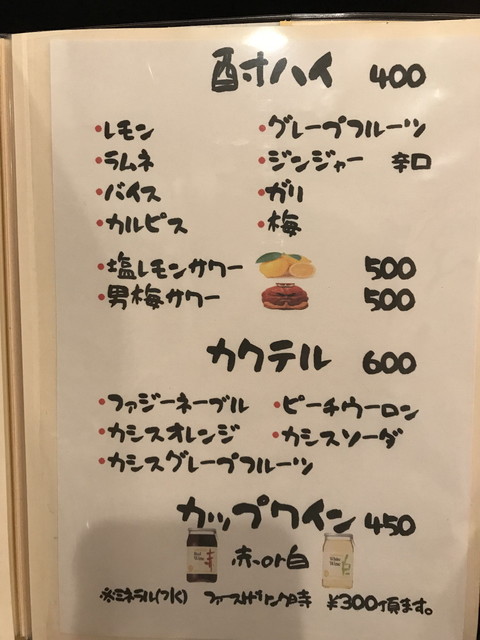 酎ハイ 400
•レモン •グレープフルーツ
•ラムネ •ジンジャー 辛口
•バイス •ガリ
•カルピス •梅
•塩レモンサワー 500
•男梅サワー 500
カクテル 600
•ファジーネーブル •ピーチウーロン
•カシスオレンジ •カシスソーダ
•カシスグレープフルーツ
カップワイン 450
赤or白
※ミネラル(つく) ファーストドリンク時 ¥300頂ます。